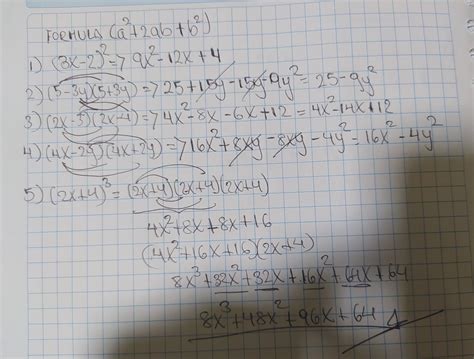 Formula (a²+2ab+b²)
1) (3x-2)² => 9x²-12x+4
2) (5-3y)(5+3y) => 25+15y-15y-9y² = 25-9y²
3) (2x-3)(2x-4) => 4x²-8x-6x+12 = 4x²-14x+12
4) (4x-2y)(4x+2y) => 16x²+8xy-8xy-4y² = 16x²-4y²
5) (2x+4)³ = (2x+4)(2x+4)(2x+4)
4x²+8x+8x+16
(4x²+16x+16)(2x+4)
8x³+32x²+32x+16x²+64x+64
8x³+48x²+96x+64